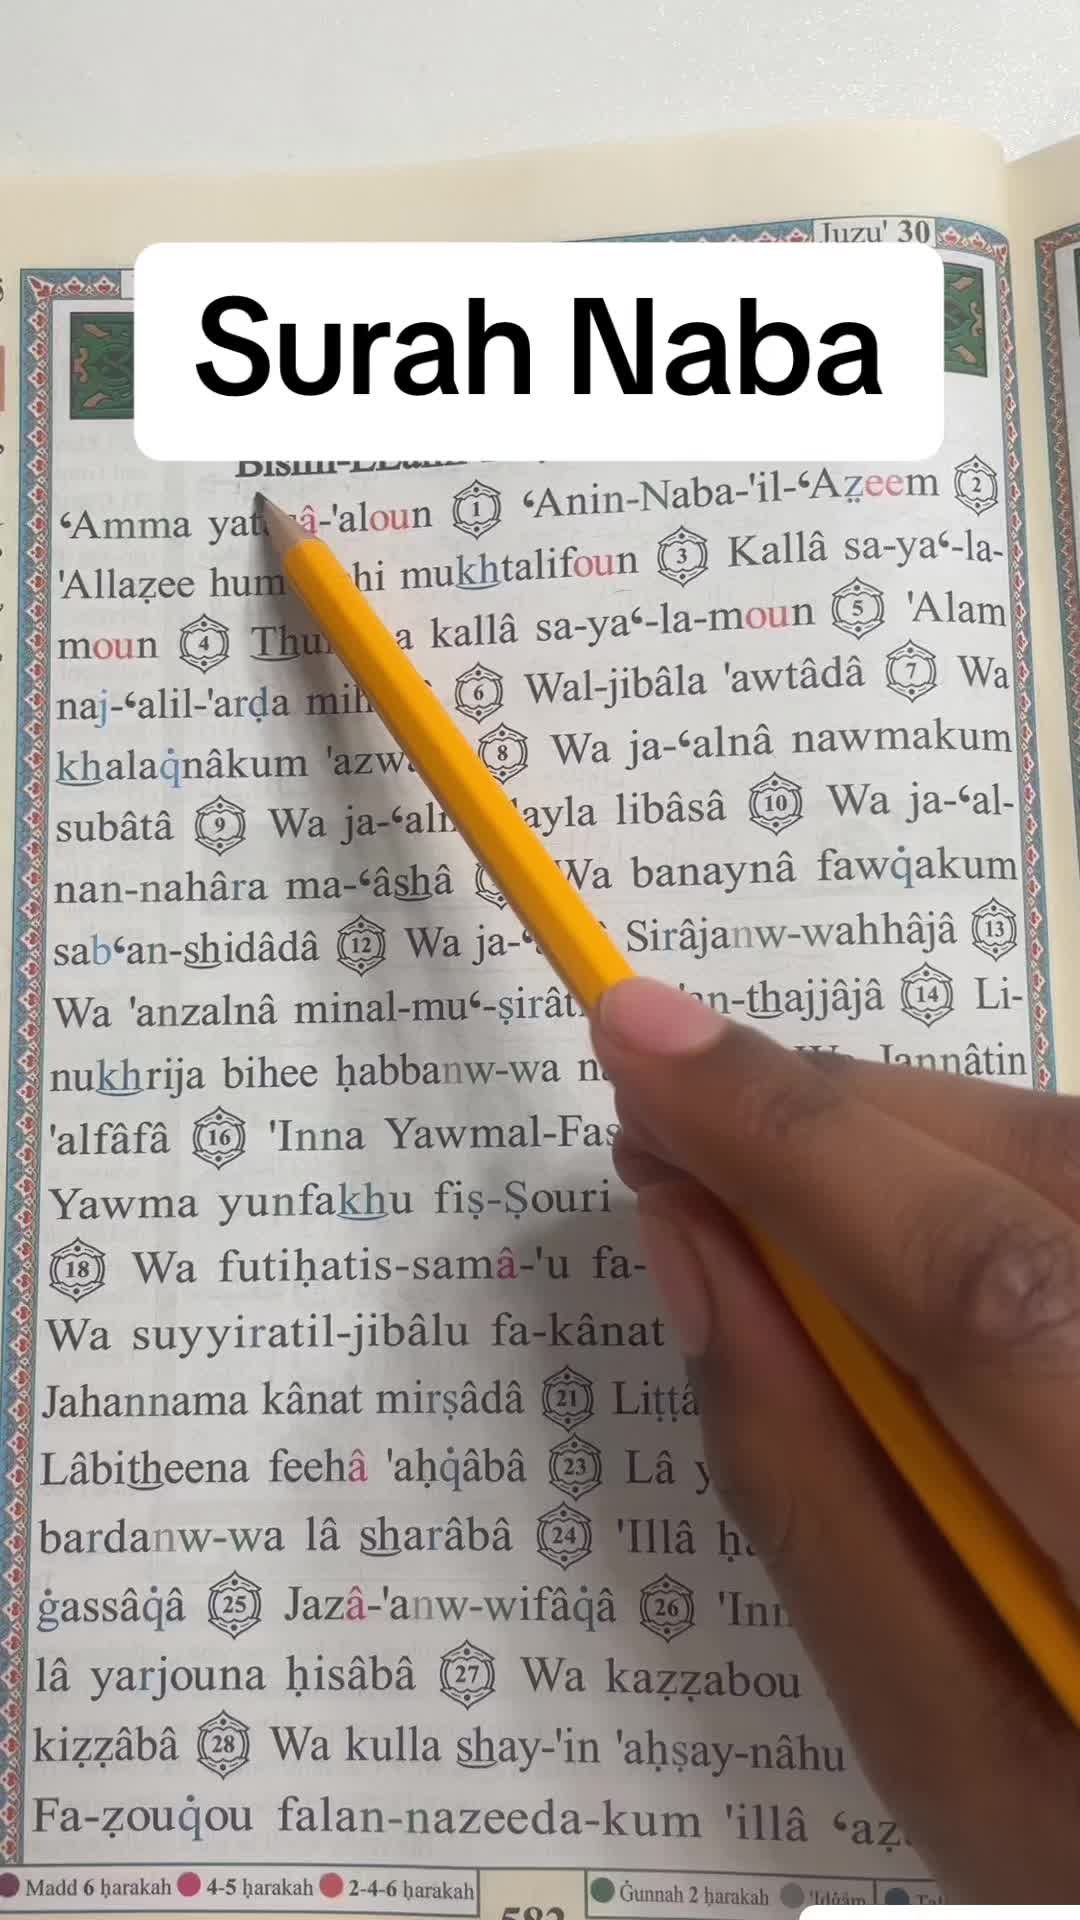 Juzu' 30
Surah Naba
‘Amma -'aloun 1 ‘Anin-Naba-'il-‘Aẓeem 2
'Allaẓee hum mukhtalifoun 3 Kallâ sa-ya‘-la-
moun 4 kallâ sa-ya‘-la-moun 5 'Alam
naj-‘alil-'arḍa 6 Wal-jibâla 'awtâdâ 7 Wa
khalaq̇nâkum 8 Wa ja-‘alnâ nawmakum
subâtâ 9 Wa libâsâ 10 Wa ja-‘al-
nan-nahâra ma-‘âshâ Wa banaynâ fawq̇akum
sab‘an-shidâdâ 12 Wa Sirâjanw-wahhâjâ 13
Wa 'anzalnâ minal-mu‘-ṣirâti -thajjâjâ 14 Li-
nukhrija bihee ḥabbanw-wa Jannâtin
'alfâfâ 16 'Inna
Yawma yunfakhu fiṣ-Ṣouri
18 Wa futiḥatis-samâ-'u fa-
Wa suyyiratil-jibâlu fa-kânat
Jahannama kânat mirṣâdâ 21
Lâbitheena feehâ 'aḥq̇âbâ 23 Lâ
bardanw-wa lâ sharâbâ 24 'Illâ
ġassâq̇â 25 Jazâ-'anw-wifâq̇â 26
lâ yarjouna ḥisâbâ 27 Wa kaẓẓabou
kiẓẓâbâ 28 Wa kulla shay-'in 'aḥṣay-nâhu
Fa-ẓouq̇ou falan-nazeeda-kum 'illâ
Madd 6 ḥarakah 4-5 ḥarakah 2-4-6 ḥarakah Ġunnah 2 ḥarakah
582